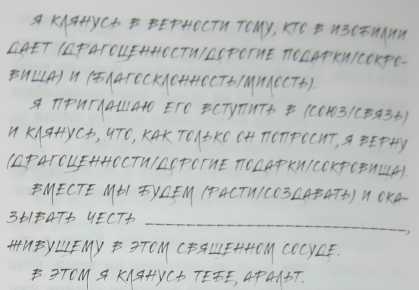 Я КЛЯНУСЬ В ВЕРНОСТИ ТОМУ, КТО В ИЗОБИЛИИ
ДАЕТ (ДРАГОЦЕННОСТИ/ДОРОГИЕ ПОДАРКИ/СОКРО-
ВИЩА) И (БЛАГОСКЛОННОСТЬ/МИЛОСТЬ).
Я ПРИГЛАШАЮ ЕГО ВСТУПИТЬ В (СОЮЗ/СВЯЗЬ)
И КЛЯНУСЬ, ЧТО, КАК ТОЛЬКО ОН ПОПРОСИТ, Я ВЕРНУ
(ДРАГОЦЕННОСТИ/ДОРОГИЕ ПОДАРКИ/СОКРОВИЩА).
ВМЕСТЕ МЫ БУДЕМ (РАСТИ/СОЗДАВАТЬ) И ОКА-
ЗЫВАТЬ ЧЕСТЬ ____________________,
ЖИВУЩЕМУ В ЭТОМ СВЯЩЕННОМ СОСУДЕ.
В ЭТОМ Я КЛЯНУСЬ ТЕБЕ, АРАЛЬТ.